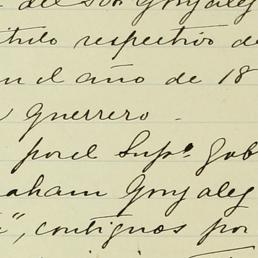 del Sor Gonzalez
título respectivo de
en el año de 18
Guerrero.
por el Supº Gob
raham Gonzalez
", contiguos por